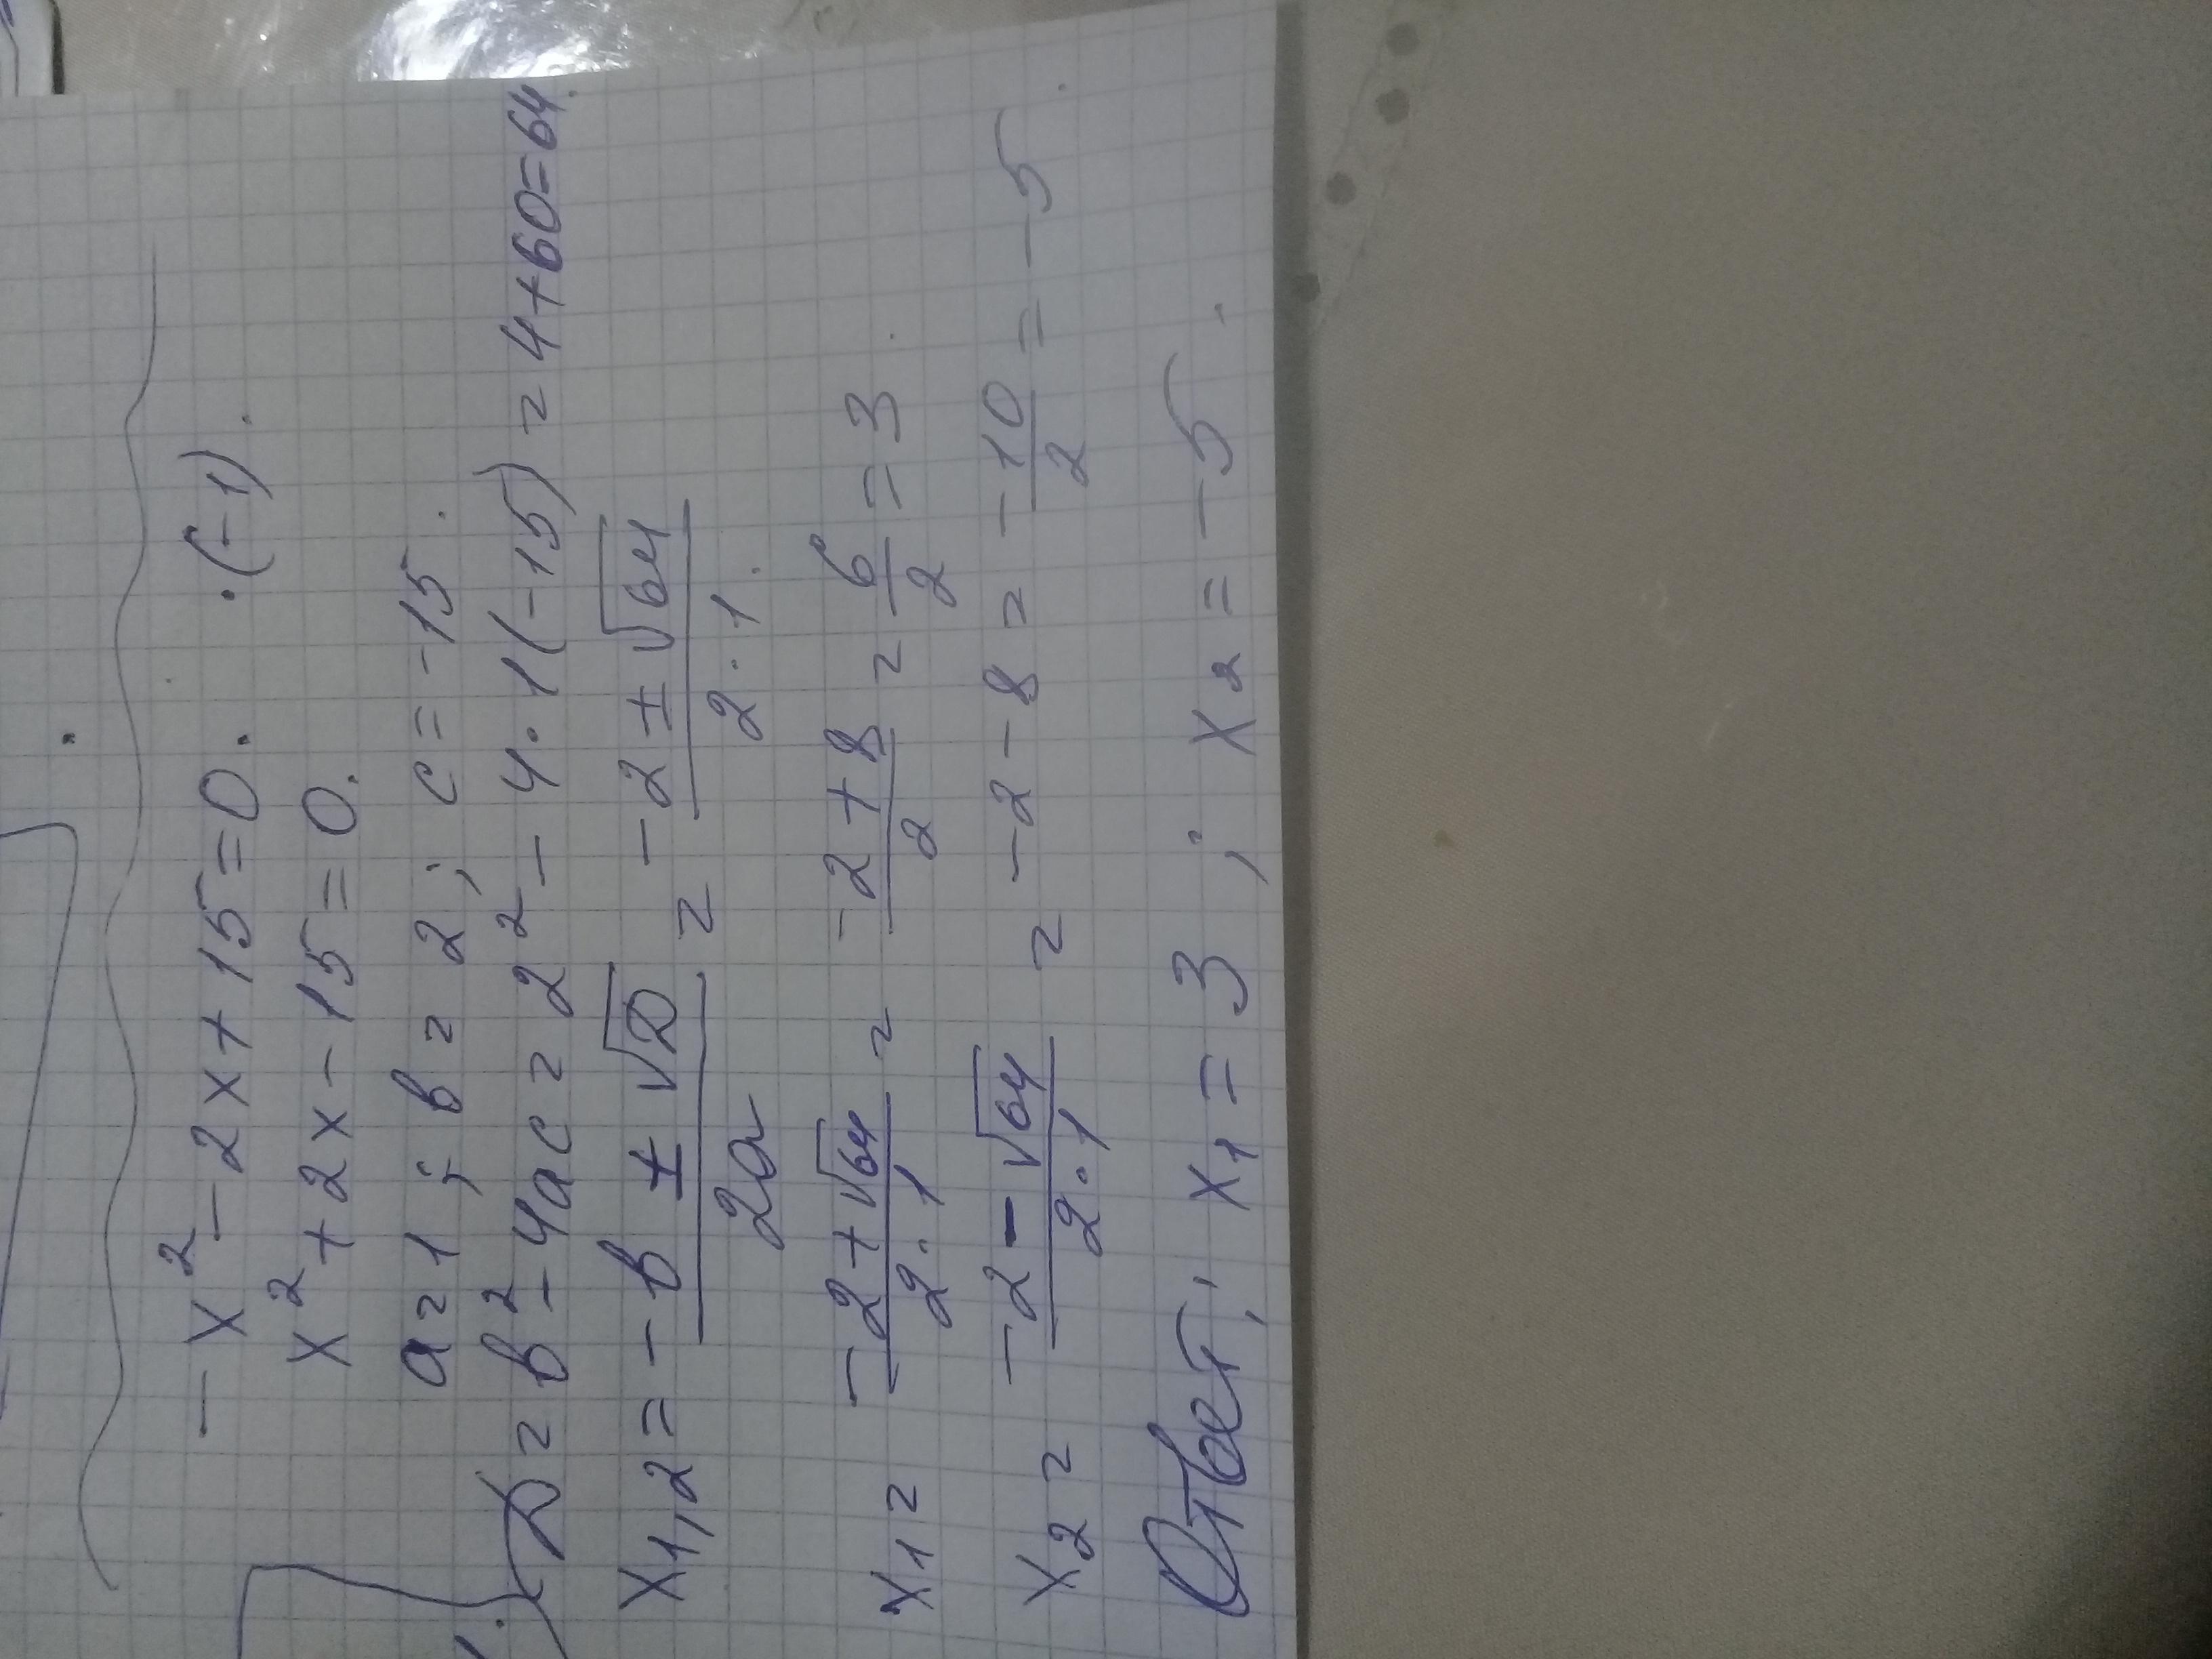 -x² - 2x + 15 = 0. · (-1).
x² + 2x - 15 = 0.
a = 1; b = 2; c = -15.
D = b² - 4ac = 2² - 4 · 1(-15) = 4 + 60 = 64.
x1,2 = (-b ± √D)/2a = (-2 ± √64)/(2 · 1).
x1 = (-2 + √64)/(2 · 1) = (-2 + 8)/2 = 6/2 = 3.
x2 = (-2 - √64)/(2 · 1) = -2 - 8 = -10/2 = -5.
Ответ: x1 = 3; x2 = -5.